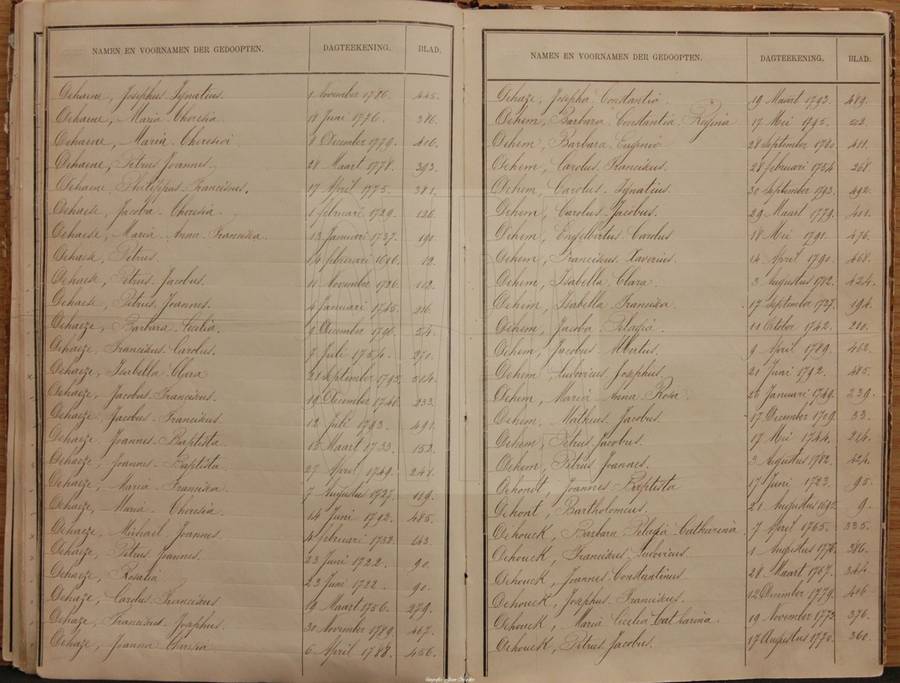 NAMEN EN VOORNAMEN DER GEDOOPTEN. DAGTEEKENING. BLAD.
Dehaene, Josephus Ignatius. 1 November 1786. 445.
Dehaene, Maria Theresia 11 Juni 1776. 386.
Dehaene, Maria Theresia 8 December 1779. 406.
Dehaene, Petrus Joannes. 28 Maart 1778. 393.
Dehaene Philippus Franciscus. 17 April 1775. 381.
Dehaese, Jacoba Theresia 1 februari 1729. 126.
Dehaese, Maria Anna Francisca. 13 Januari 1737. 190.
Dehaese Petrus. februari 12.
Dehaese, Petrus Jacobus. 11 November 1726. 112.
Dehaese, Petrus Joannes. 4 Januari 1745. 216.
Dehaeze, Barbara Cecilia 9 December 54.
Dehaeze, Franciscus Carolus. 7 Juli 1754. 270.
Dehaeze, Isabella Clara 21 September 1795. 514.
Dehaeze, Jacobus Franciscus. 19 December 1746. 233.
Dehaeze Jacobus Franciscus. 12 Juli 1793. 491.
Dehaeze, Joannes Baptista 12 Maart 1733. 152.
Dehaeze, Joannes Baptista. 27 April 1749. 248.
Dehaeze, Maria Francisca 7 Augustus 1727. 119.
Dehaeze, Maria Theresia 14 Juni 1792. 485.
Dehaeze, Michael Joannes. 4 februari 1732. 143.
Dehaeze, Petrus Joannes. 23 Juni 1722. 90.
Dehaeze, Rosalia 23 Juni 1722. 90.
Dehaze, Carolus Franciscus 19 Maart 1756. 279.
Dehaze, Franciscus Josephus. 30 November 1789. 467.
Dehaze, Joanna Theresia 6 April 1788. 456.
NAMEN EN VOORNAMEN DER GEDOOPTEN. DAGTEEKENING. BLAD.
Dehaze, Josepha Constantia. 19 Maart 1793. 489.
Dehem, Barbara Constantia Regina 17 Mei
Dehem, Barbara Eugenia 28 september 1780. 411.
Dehem, Carolus Franciscus. 28 februari 1754. 268.
Dehem, Carolus Ignatius. 30 september 1793. 492.
Dehem, Carolus Jacobus. 29 Maart 1779. 401.
Dehem, Engelbertus Carolus 18 Mei 1791. 476.
Dehem, Franciscus Xaverius. 14 April 1790. 468.
Dehem, Isabella Clara. 3 Augustus 1782. 424.
Dehem, Isabella Francisca. 17 September 1737. 194.
Dehem, Jacoba Pelagia 11 October 1742. 210.
Dehem, Jacobus Albertus. 9 April 1789. 462.
Dehem, Ludovicus Josephus. 21 Juni 1792. 485.
Dehem, Maria Anna Rosa 26 Januari 1749. 239.
Dehem, Matheus Jacobus. 17 December 1709. 53.
Dehem, Petrus Jacobus. 17 Mei 1744. 214.
Dehem, Petrus Joannes. 3 Augustus 1782. 424.
Dehondt, Joannes Baptista 17 Juni 1723. 95.
Dehont, Bartholomeus. 21 Augustus 9.
Dehouck, Barbara Pelagia Catharina. 7 April 1765. 325.
Dehouck, Franciscus Ludovicus. 1 Augustus 1776. 386.
Dehouck, Joannes Constantinus 28 Maart 1767. 344.
Dehouck, Josephus Franciscus. 12 December 1779. 406.
Dehouck, Maria Cecilia Catharina. 19 November 1773. 376.
Dehouck, Petrus Jacobus. 17 Augustus 1770. 360.